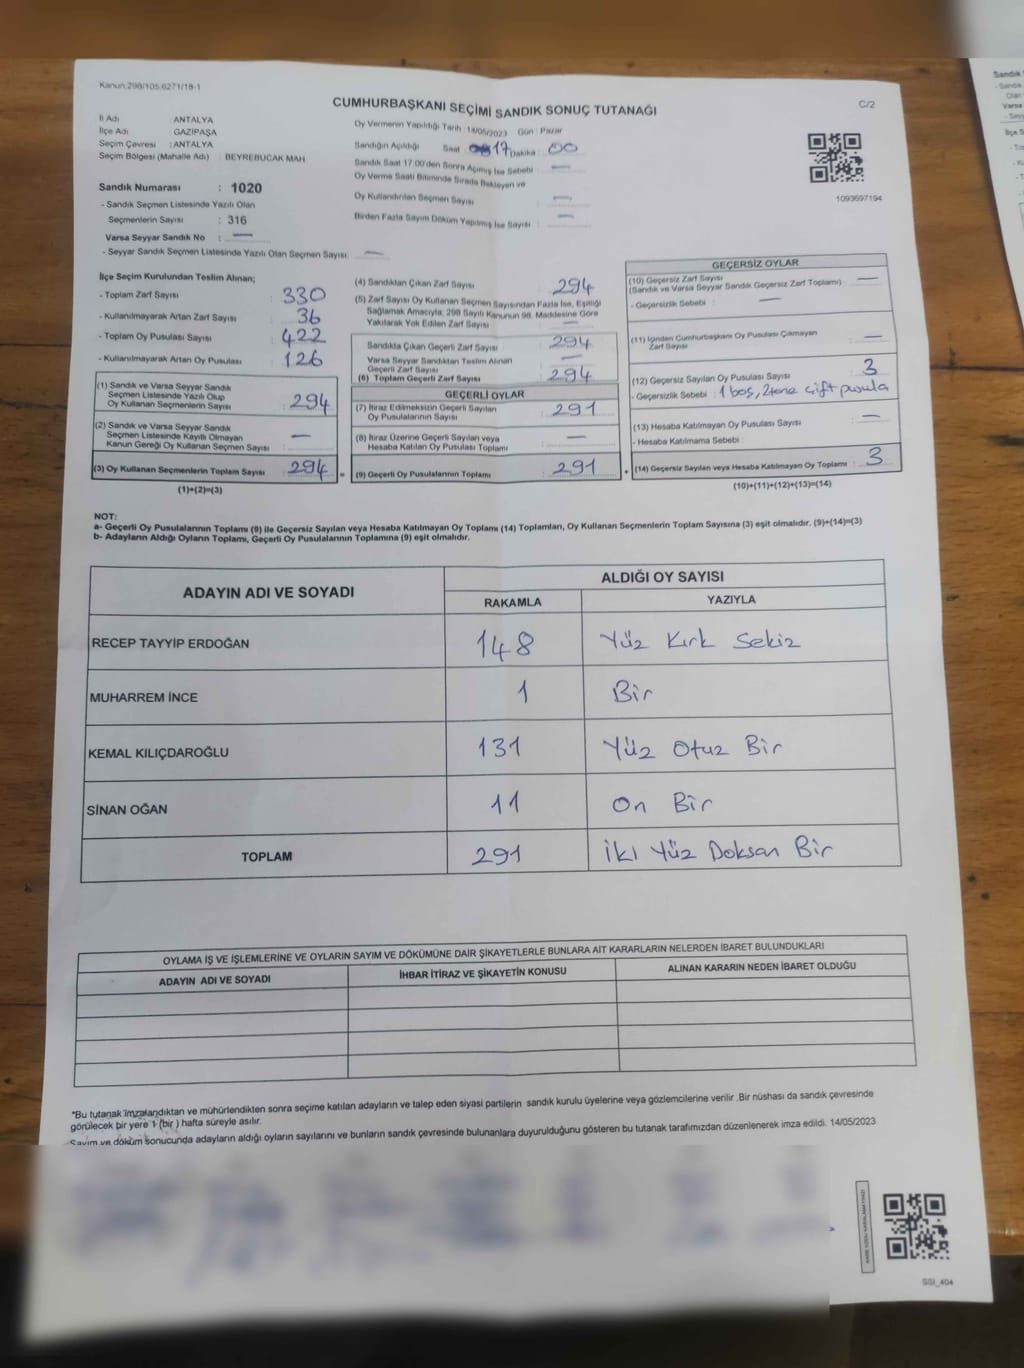 Kanun:298/105,6271/18-1
CUMHURBAŞKANI SEÇİMİ SANDIK SONUÇ TUTANAĞI
C/2
İl Adı : ANTALYA
İlçe Adı : GAZİPAŞA
Seçim Çevresi : ANTALYA
Seçim Bölgesi (Mahalle Adı) : BEYREBUCAK MAH.
Sandık Numarası : 1020
- Sandık Seçmen Listesinde Yazılı Olan
Seçmenlerin Sayısı : 316
Varsa Seyyar Sandık No : —
- Seyyar Sandık Seçmen Listesinde Yazılı Olan Seçmen Sayısı : —
Oy Vermenin Yapıldığı Tarih : 14/05/2023 Gün : Pazar
Sandığın Açıldığı Saat : 17 Dakika : 00
Sandık Saat 17.00'den Sonra Açılmış İse Sebebi : —
Oy Verme Saati Bitiminde Sırada Bekleyen ve
Oy Kullandırılan Seçmen Sayısı : —
Birden Fazla Sayım Döküm Yapılmış İse Sayısı : —
1093697194
İlçe Seçim Kurulundan Teslim Alınan;
- Toplam Zarf Sayısı : 330
- Kullanılmayarak Artan Zarf Sayısı : 36
- Toplam Oy Pusulası Sayısı : 422
- Kullanılmayarak Artan Oy Pusulası : 126
(1) Sandık ve Varsa Seyyar Sandık
Seçmen Listesinde Yazılı Olup
Oy Kullanan Seçmenlerin Sayısı : 294
(2) Sandık ve Varsa Seyyar Sandık
Seçmen Listesinde Kayıtlı Olmayan
Kanun Gereği Oy Kullanan Seçmen Sayısı : —
(3) Oy Kullanan Seçmenlerin Toplam Sayısı : 294
(1)+(2)=(3)
(4) Sandıktan Çıkan Zarf Sayısı : 294
(5) Zarf Sayısı Oy Kullanan Seçmen Sayısından Fazla İse, Eşitliği
Sağlamak Amacıyla, 298 Sayılı Kanunun 98. Maddesine Göre
Yakılarak Yok Edilen Zarf Sayısı : —
Sandıkta Çıkan Geçerli Zarf Sayısı : 294
Varsa Seyyar Sandıktan Teslim Alınan
Geçerli Zarf Sayısı : —
(6) Toplam Geçerli Zarf Sayısı : 294
GEÇERLİ OYLAR
(7) İtiraz Edilmeksizin Geçerli Sayılan
Oy Pusulalarının Sayısı : 291
(8) İtiraz Üzerine Geçerli Sayılan veya
Hesaba Katılan Oy Pusulaları Toplamı : —
= (9) Geçerli Oy Pusulalarının Toplamı : 291
GEÇERSİZ OYLAR
(10) Geçersiz Zarf Sayısı
(Sandık ve Varsa Seyyar Sandık Geçersiz Zarf Toplamı) : —
- Geçersizlik Sebebi : —
(11) İçinden Cumhurbaşkanı Oy Pusulası Çıkmayan
Zarf Sayısı : —
(12) Geçersiz Sayılan Oy Pusulası Sayısı : 3
- Geçersizlik Sebebi : 1 boş, 2 tane çift pusula
(13) Hesaba Katılmayan Oy Pusulası Sayısı : —
- Hesaba Katılmama Sebebi :
+ (14) Geçersiz Sayılan veya Hesaba Katılmayan Oy Toplamı : 3
(10)+(11)+(12)+(13)=(14)
NOT:
a- Geçerli Oy Pusulalarının Toplamı (9) ile Geçersiz Sayılan veya Hesaba Katılmayan Oy Toplamı (14) Toplamları, Oy Kullanan Seçmenlerin Toplam Sayısına (3) eşit olmalıdır. (9)+(14)=(3)
b- Adayların Aldığı Oyların Toplamı, Geçerli Oy Pusulalarının Toplamına (9) eşit olmalıdır.
ADAYIN ADI VE SOYADI
ALDIĞI OY SAYISI
RAKAMLA YAZIYLA
RECEP TAYYİP ERDOĞAN 148 Yüz Kırk Sekiz
MUHARREM İNCE 1 Bir
KEMAL KILIÇDAROĞLU 131 Yüz Otuz Bir
SİNAN OĞAN 11 On Bir
TOPLAM 291 İki Yüz Doksan Bir
OYLAMA İŞ VE İŞLEMLERİNE VE OYLARIN SAYIM VE DÖKÜMÜNE DAİR ŞİKAYETLERLE BUNLARA AİT KARARLARIN NELERDEN İBARET BULUNDUKLARI
ADAYIN ADI VE SOYADI İHBAR İTİRAZ VE ŞİKAYETİN KONUSU ALINAN KARARIN NEDEN İBARET OLDUĞU
*Bu tutanak imzalandıktan ve mühürlendikten sonra seçime katılan adayların ve talep eden siyasi partilerin sandık kurulu üyelerine veya gözlemcilerine verilir .Bir nüshası da sandık çevresinde
görülecek bir yere 1 (bir ) hafta süreyle asılır.
Sayım ve döküm sonucunda adayların aldığı oyların sayılarını ve bunların sandık çevresinde bulunanlara duyurulduğunu gösteren bu tutanak tarafımızdan düzenlenerek imza edildi. 14/05/2023
SSI_404